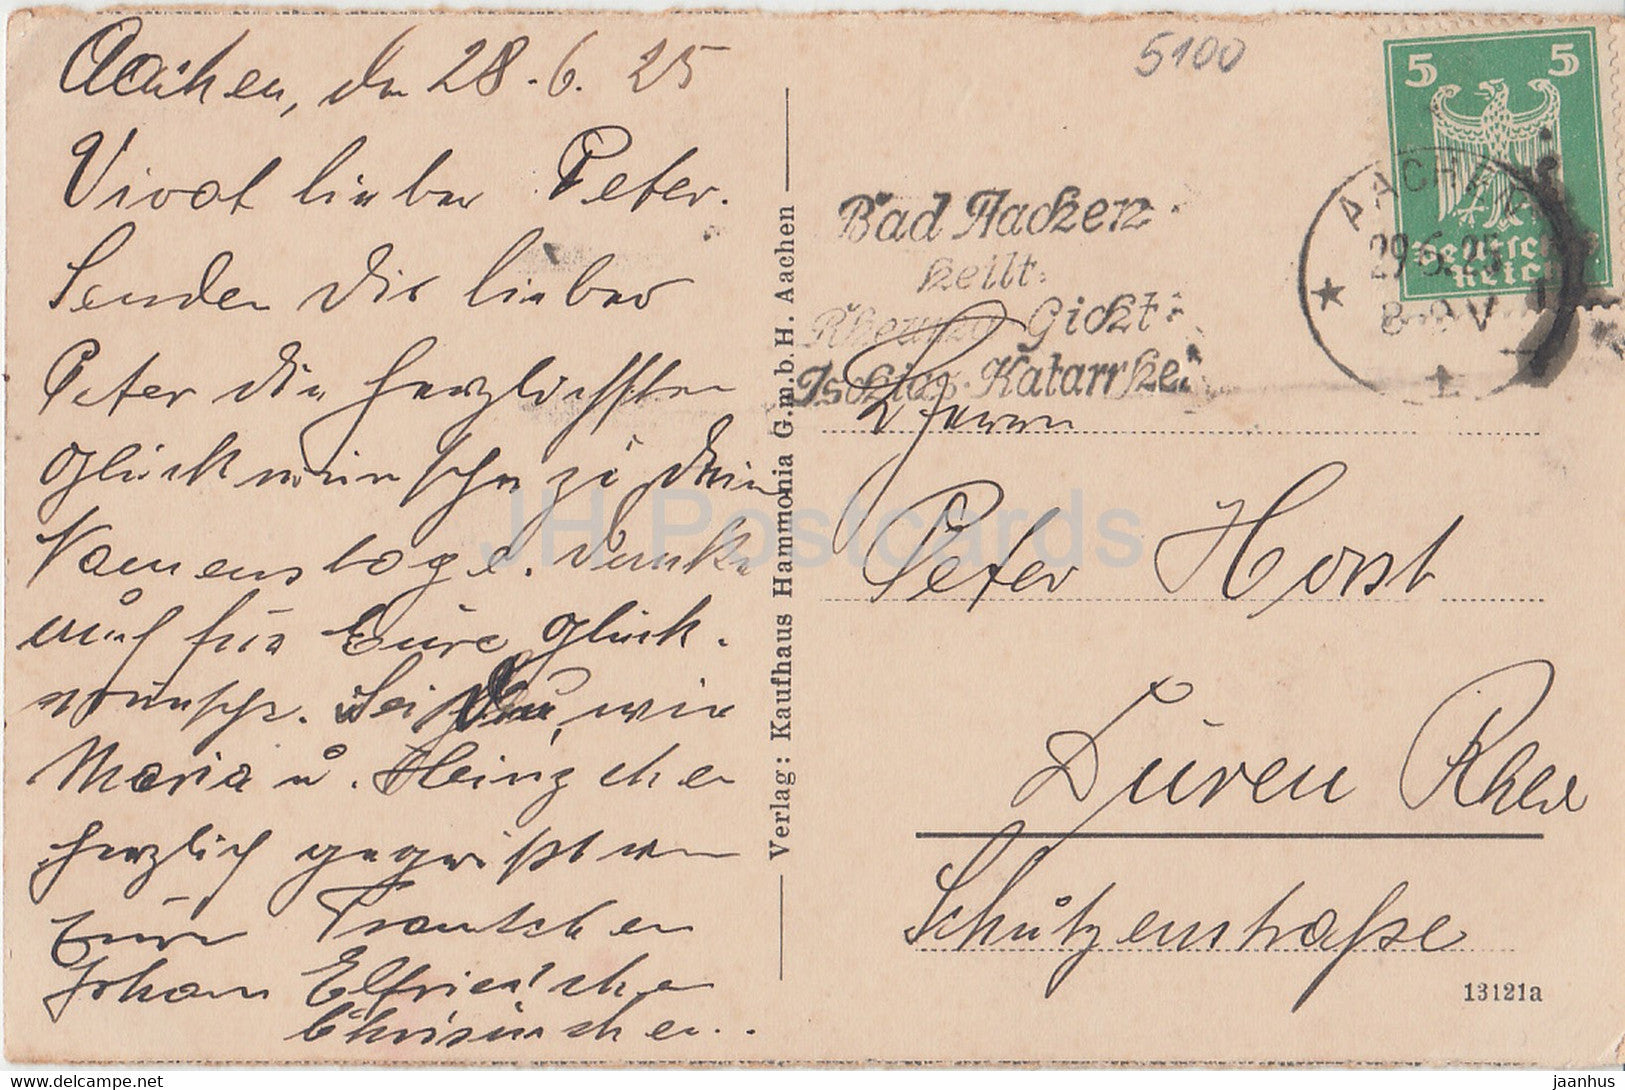 Aachen, den 28.6.25
Vivat lieber Peter.
Senden Dir lieber
Peter die herzlichsten
Glückwünsche zu Dein
Namenstage. Danke
auch für Eure Glück-
wünsche. Sei Du, wie
Maria u. Heinzchen
herzlich gegrüßt von
Eure Trautchen
Johan Elfriedchen
Christinchen..
Verlag: Kaufhaus Hammonia G.m.b.H. Aachen
5100
5 5
Deutsches
Reich
AACHEN
29.6.25
8-9V
Bad Aachen
heilt:
Rheuma Gicht
Ischias Katarrhe
Herrn
Peter Horst
Düren Rhld
Schützenstraße
13121a
JH Postcards
www.delcampe.net
jaanhus